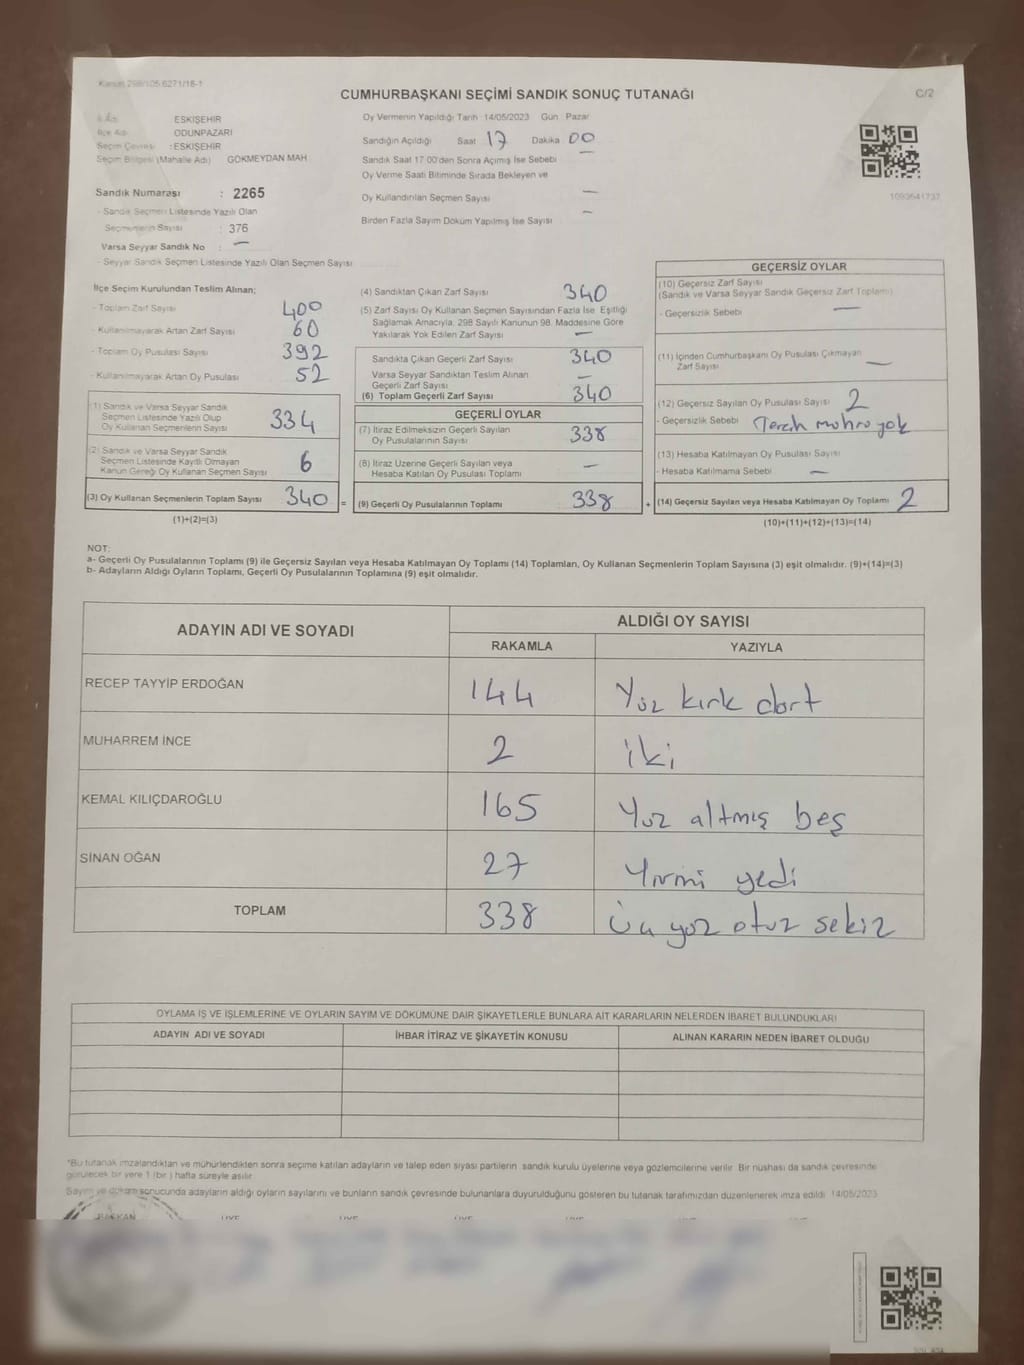 Kanun 298/105-6271/18-1
CUMHURBAŞKANI SEÇİMİ SANDIK SONUÇ TUTANAĞI
C/2
İl Adı ESKİŞEHİR
İlçe Adı ODUNPAZARI
Seçim Çevresi : ESKİŞEHİR
Seçim Bölgesi (Mahalle Adı) GÖKMEYDAN MAH.
Sandık Numarası : 2265
- Sandık Seçmen Listesinde Yazılı Olan
Seçmenlerin Sayısı : 376
Varsa Seyyar Sandık No : —
- Seyyar Sandık Seçmen Listesinde Yazılı Olan Seçmen Sayısı
Oy Vermenin Yapıldığı Tarih 14/05/2023 Gün Pazar
Sandığın Açıldığı Saat 17 Dakika 00
Sandık Saat 17:00'den Sonra Açılmış İse Sebebi —
Oy Verme Saati Bitiminde Sırada Bekleyen ve
Oy Kullandırılan Seçmen Sayısı —
Birden Fazla Sayım Döküm Yapılmış İse Sayısı —
1093641737
İlçe Seçim Kurulundan Teslim Alınan;
- Toplam Zarf Sayısı 400
- Kullanılmayarak Artan Zarf Sayısı 60
- Toplam Oy Pusulası Sayısı 392
- Kullanılmayarak Artan Oy Pusulası 52
(1) Sandık ve Varsa Seyyar Sandık
Seçmen Listesinde Yazılı Olup
Oy Kullanan Seçmenlerin Sayısı 334
(2) Sandık ve Varsa Seyyar Sandık
Seçmen Listesinde Kayıtlı Olmayan
Kanun Gereği Oy Kullanan Seçmen Sayısı 6
(3) Oy Kullanan Seçmenlerin Toplam Sayısı 340 =
(1)+(2)=(3)
(4) Sandıktan Çıkan Zarf Sayısı 340
(5) Zarf Sayısı Oy Kullanan Seçmen Sayısından Fazla İse Eşitliği
Sağlamak Amacıyla, 298 Sayılı Kanunun 98. Maddesine Göre
Yakılarak Yok Edilen Zarf Sayısı —
Sandıkta Çıkan Geçerli Zarf Sayısı 340
Varsa Seyyar Sandıktan Teslim Alınan
Geçerli Zarf Sayısı —
(6) Toplam Geçerli Zarf Sayısı 340
GEÇERLİ OYLAR
(7) İtiraz Edilmeksizin Geçerli Sayılan
Oy Pusulalarının Sayısı 338
(8) İtiraz Üzerine Geçerli Sayılan veya
Hesaba Katılan Oy Pusulası Toplamı —
(9) Geçerli Oy Pusulalarının Toplamı 338 +
GEÇERSİZ OYLAR
(10) Geçersiz Zarf Sayısı
(Sandık ve Varsa Seyyar Sandık Geçersiz Zarf Toplamı)
- Geçersizlik Sebebi —
(11) İçinden Cumhurbaşkanı Oy Pusulası Çıkmayan
Zarf Sayısı —
(12) Geçersiz Sayılan Oy Pusulası Sayısı 2
- Geçersizlik Sebebi Tercih mührü yok
(13) Hesaba Katılmayan Oy Pusulası Sayısı
- Hesaba Katılmama Sebebi —
(14) Geçersiz Sayılan veya Hesaba Katılmayan Oy Toplamı 2
(10)+(11)+(12)+(13)=(14)
NOT:
a- Geçerli Oy Pusulalarının Toplamı (9) ile Geçersiz Sayılan veya Hesaba Katılmayan Oy Toplamı (14) Toplamları, Oy Kullanan Seçmenlerin Toplam Sayısına (3) eşit olmalıdır. (9)+(14)=(3)
b- Adayların Aldığı Oyların Toplamı, Geçerli Oy Pusulalarının Toplamına (9) eşit olmalıdır.
ADAYIN ADI VE SOYADI ALDIĞI OY SAYISI
RAKAMLA YAZIYLA
RECEP TAYYİP ERDOĞAN 144 Yüz kırk dört
MUHARREM İNCE 2 iki
KEMAL KILIÇDAROĞLU 165 Yüz altmış beş
SİNAN OĞAN 27 Yirmi yedi
TOPLAM 338 Üç yüz otuz sekiz
OYLAMA İŞ VE İŞLEMLERİNE VE OYLARIN SAYIM VE DÖKÜMÜNE DAİR ŞİKAYETLERLE BUNLARA AİT KARARLARIN NELERDEN İBARET BULUNDUKLARI
ADAYIN ADI VE SOYADI İHBAR İTİRAZ VE ŞİKAYETİN KONUSU ALINAN KARARIN NEDEN İBARET OLDUĞU
*Bu tutanak imzalandıktan ve mühürlendikten sonra seçime katılan adayların ve talep eden siyasi partilerin sandık kurulu üyelerine veya gözlemcilerine verilir. Bir nüshası da sandık çevresinde
görülecek bir yere 1 (bir) hafta süreyle asılır.
Sayım ve döküm sonucunda adayların aldığı oyların sayılarını ve bunların sandık çevresinde bulunanlara duyurulduğunu gösteren bu tutanak tarafımızdan düzenlenerek imza edildi. 14/05/2023
BAŞKAN ÜYE ÜYE ÜYE ÜYE ÜYE